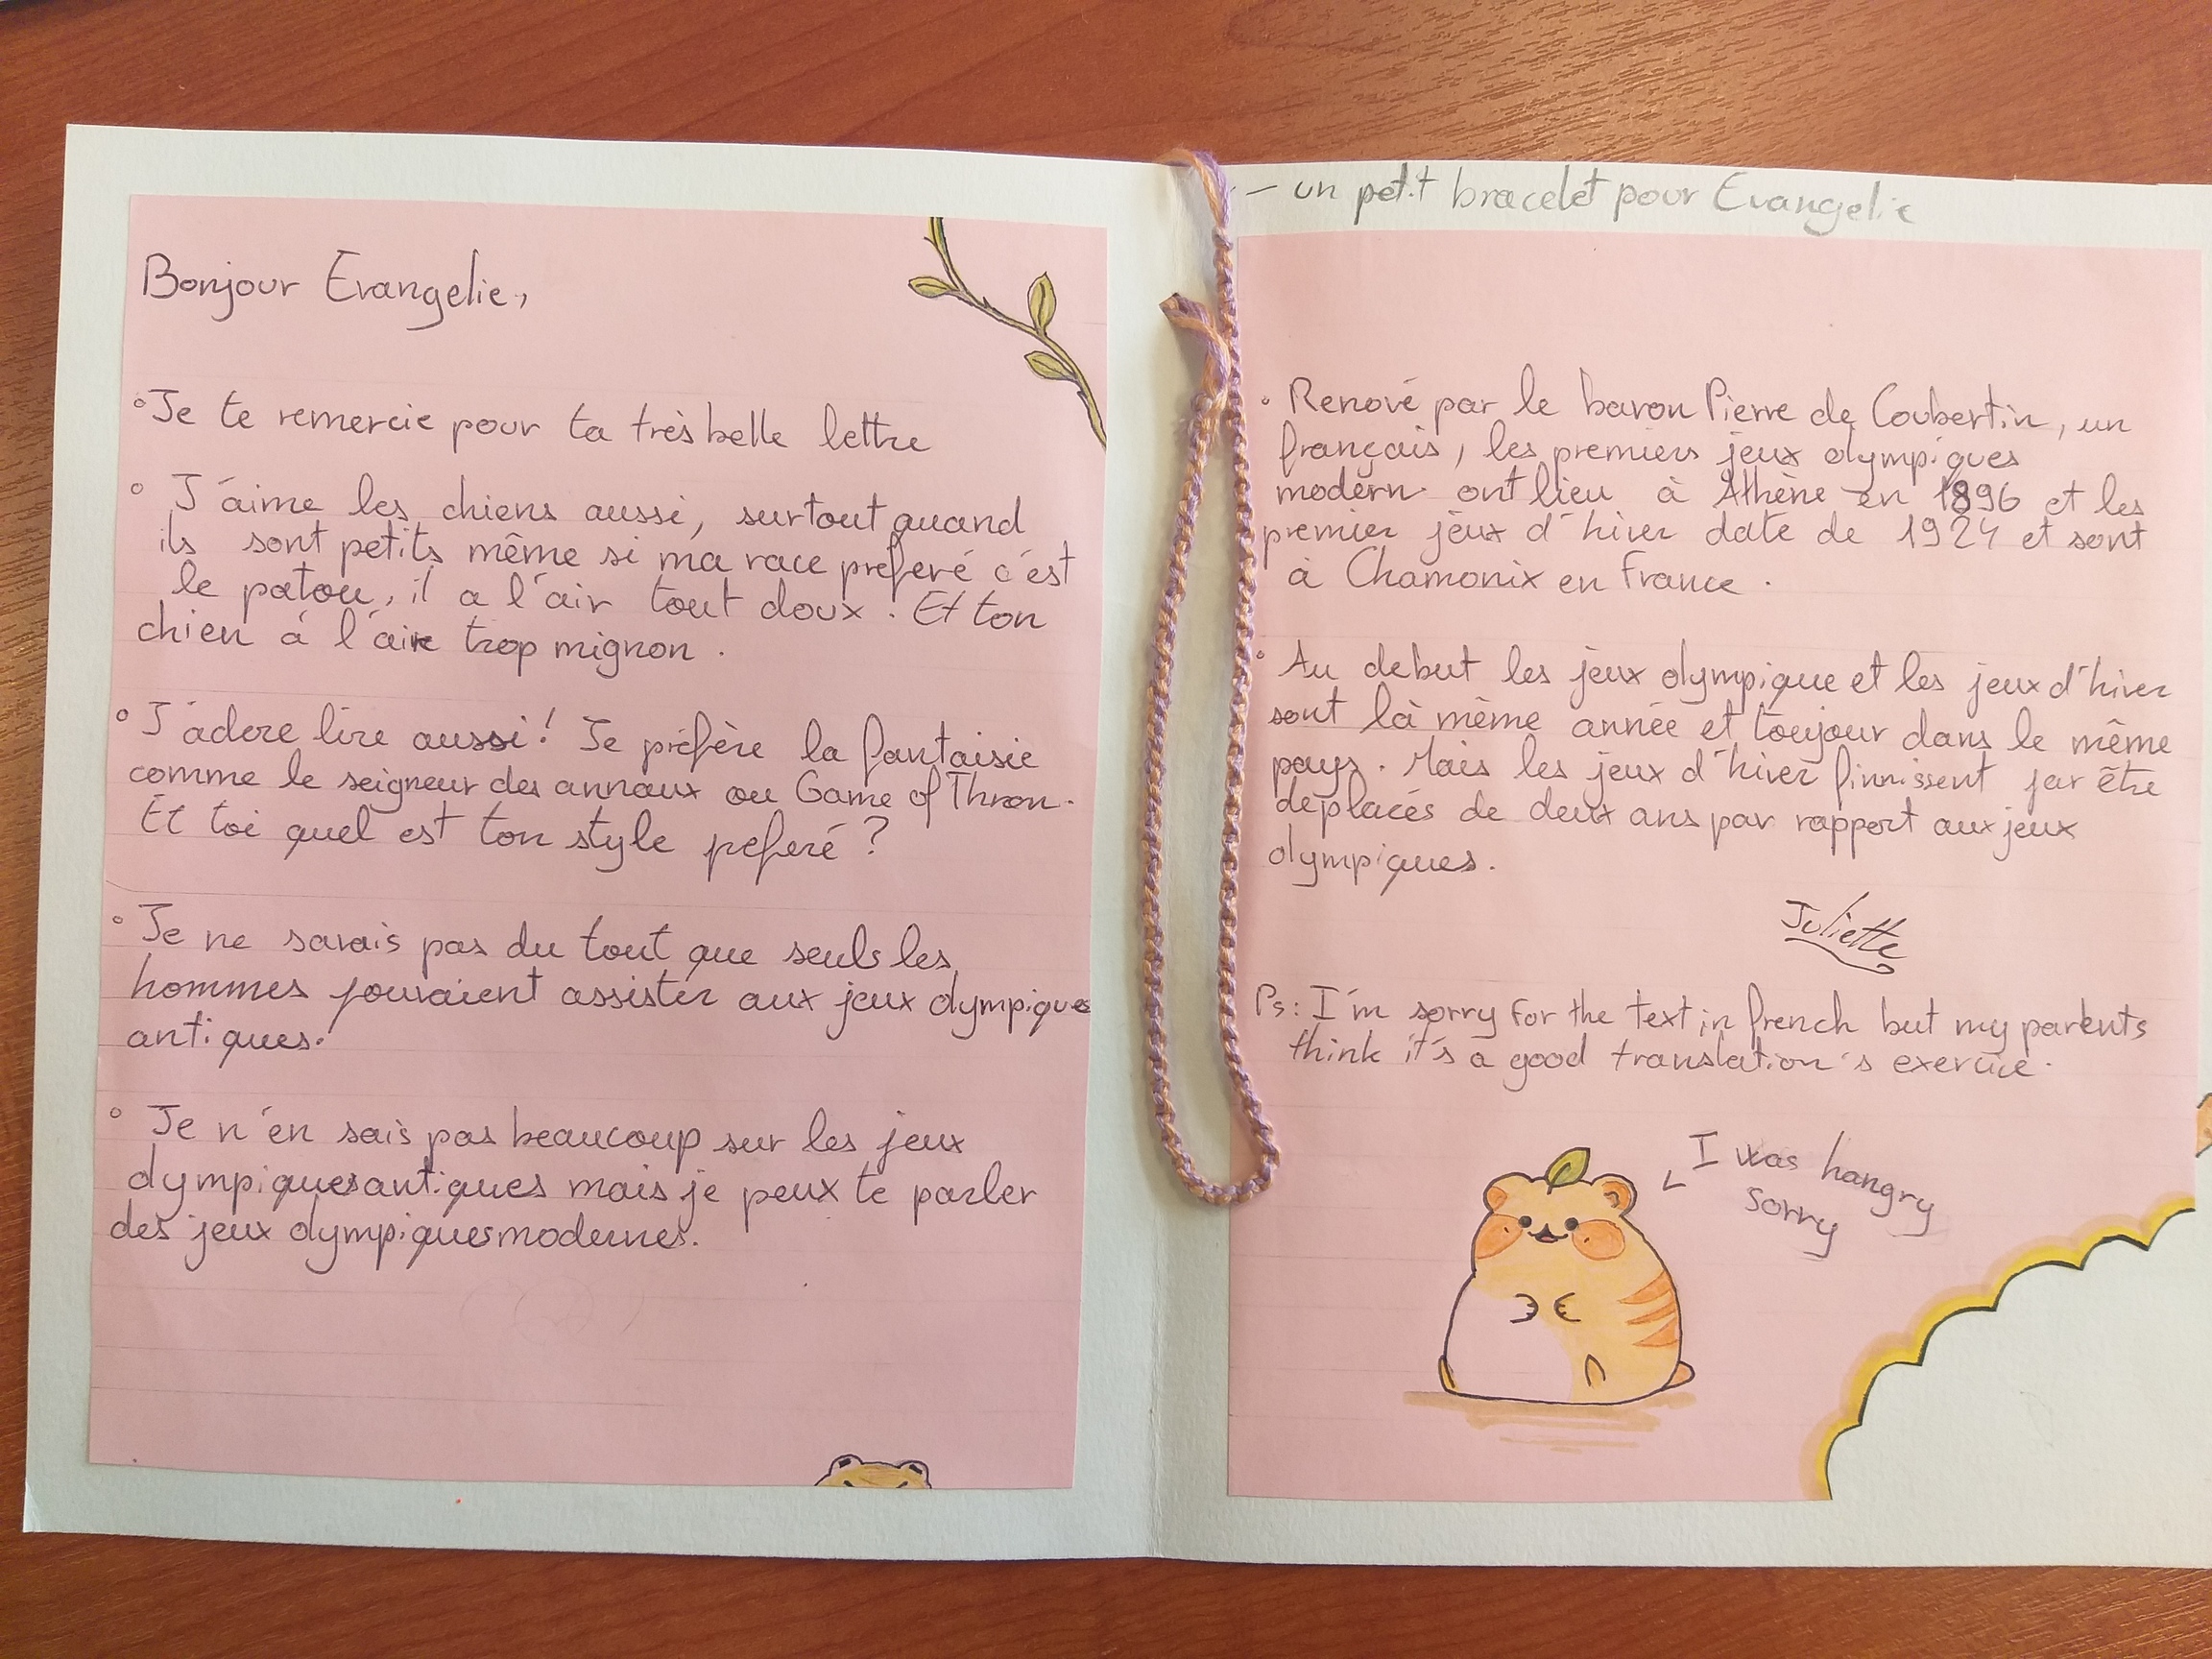 Bonjour Evangelie,
° Je te remercie pour ta très belle lettre
° J'aime les chiens aussi, surtout quand
ils sont petits même si ma race preferé c'est
le patou, il a l'air tout doux. Et ton
chien à l'air trop mignon.
° J'adore lire aussi! Je préfère la fantaisie
comme le seigneur des annaux ou Game of Thron.
Et toi quel est ton style peferé ?
° Je ne savais pas du tout que seuls les
hommes pouvaient assister aux jeux olympiques
antiques.
° Je n'en sais pas beaucoup sur les jeux
olympiques antiques mais je peux te parler
des jeux olympiques modernes.
- un petit bracelet pour Evangelie
° Renové par le baron Pierre de Coubertin, un
français, les premiers jeux olympiques
modern ont lieu à Athène en 1896 et les
premier jeux d'hiver date de 1924 et sont
à Chamonix en France.
° Au debut les jeux olympique et les jeux d'hiver
sont là même année et toujour dans le même
pays. Mais les jeux d'hiver finnissent par être
deplacés de deux ans par rapport aux jeux
olympiques.
Juliette
Ps: I'm sorry for the text in french but my parents
think it's a good translation's exercice.
I was hangry
sorry